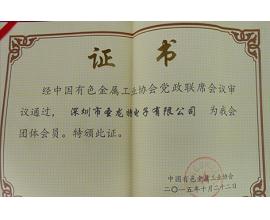 证书
经中国有色金属工业协会党政联席会议审
议通过，深圳市金龙特电子有限公司为我会
团体会员。特颁此证。
中国有色金属工业协会
二〇一五年十月二十二日